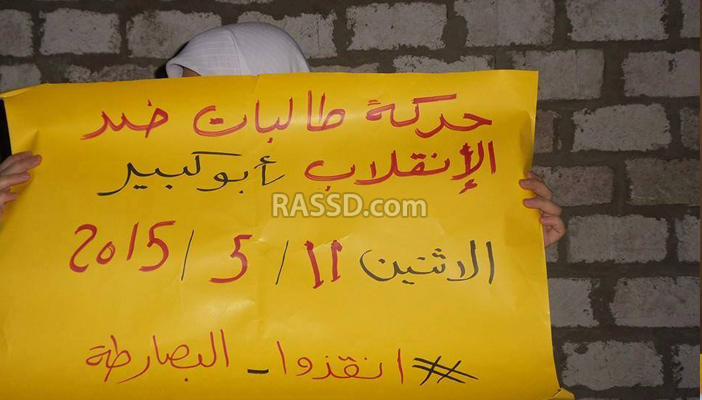 حركة طالبات ضد
الإنقلاب بأبو كبير
RASSD.com
الاثنين 11 / 5 / 2015
#انقذوا_البصارطة